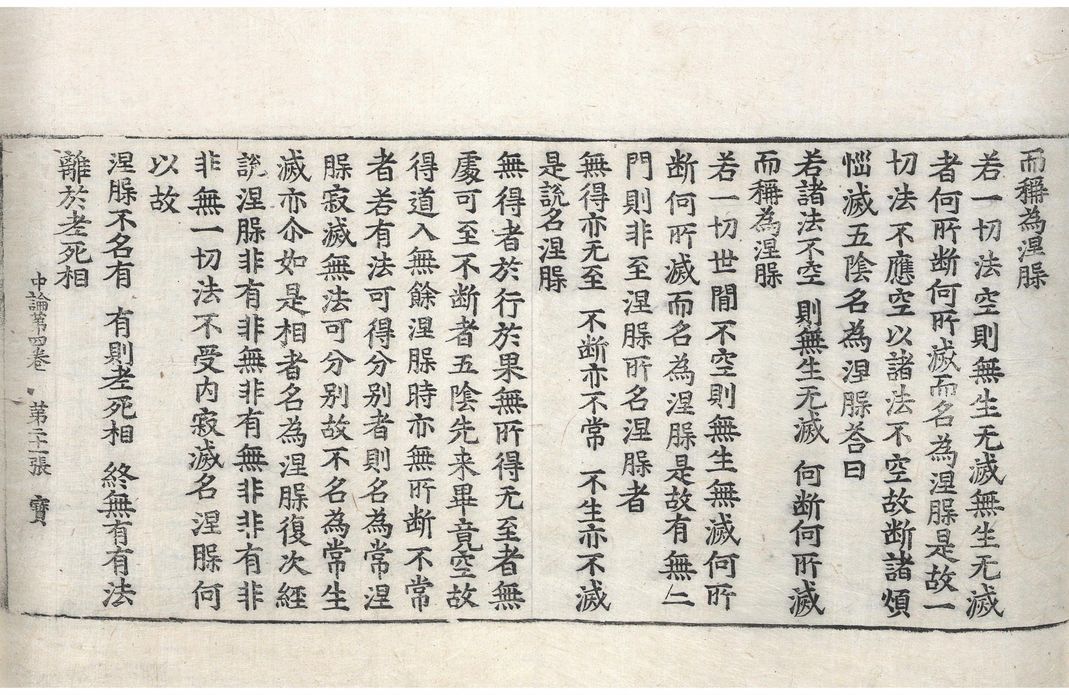 而稱為涅槃
若一切法空則無生无滅無生无滅
者何所断何所滅而名為涅槃是故一
切法不應空以諸法不空故断諸煩
惱滅五陰名為涅槃荅曰
若諸法不空 則無生无滅 何断何所滅
而稱為涅槃
若一切世閒不空則無生無滅何所
断何所滅而名為涅槃是故有無二
門則非至涅槃所名涅槃者
無得亦无至 不断亦不常 不生亦不滅
是說名涅槃
無得者於行於果無所得无至者無
處可至不断者五陰先来畢竟空故
得道入無餘涅槃時亦無所断不常
者若有法可得分別者則名為常涅
槃寂滅無法可分別故不名為常生
滅亦尒如是相者名為涅槃復次経
說涅槃非有非無非有無非非有非
非無一切法不受內寂滅名涅槃何
以故
涅槃不名有 有則老死相 終無有有法
離於老死相
中論第四卷 第張 寶